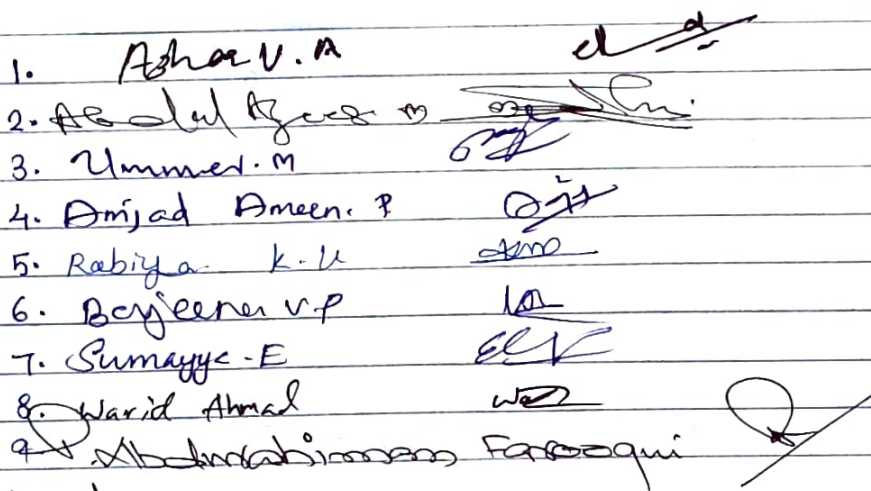 1. Azhar V. A
2. Abdul Azeez M
3. Ummer. M
4. Amjad Ameen. P
5. Rabiya. K. U
6. Berjeena V. P
7. Sumayya - E
8. Warid Ahmad
9. Abdurrahiman Farooqui